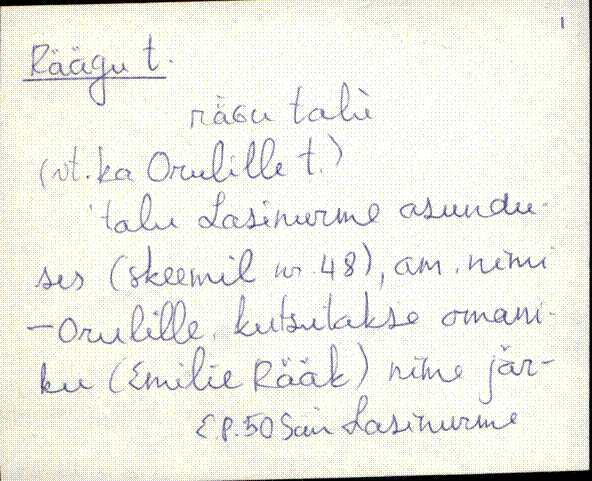 1
Räägu t.
räGu talu
(vt. ka Orulille t.)
talu Lasinurme asundu-
ses (skeemil nr. 48), am. nimi
- Orulille, kutsutakse omani-
ku (Emilie Rääk) nime jär-
E.P. 50 Sim Lasinurme